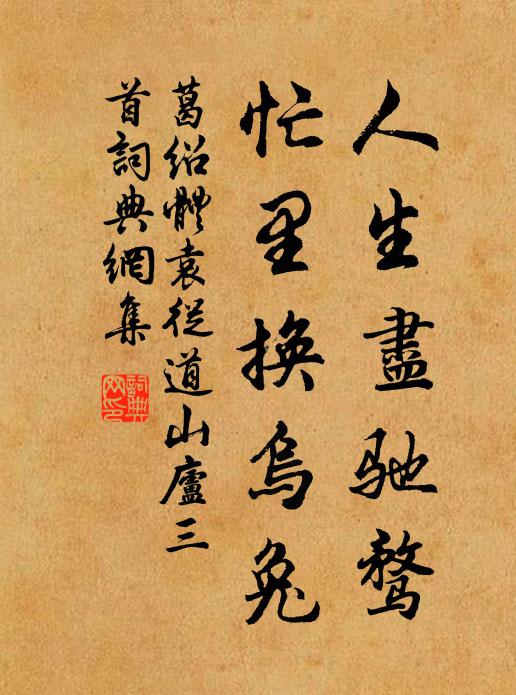 人生盡馳騖
忙里換烏兔
葛紹體袁從道山廬三
首詞典網集
詞典網印